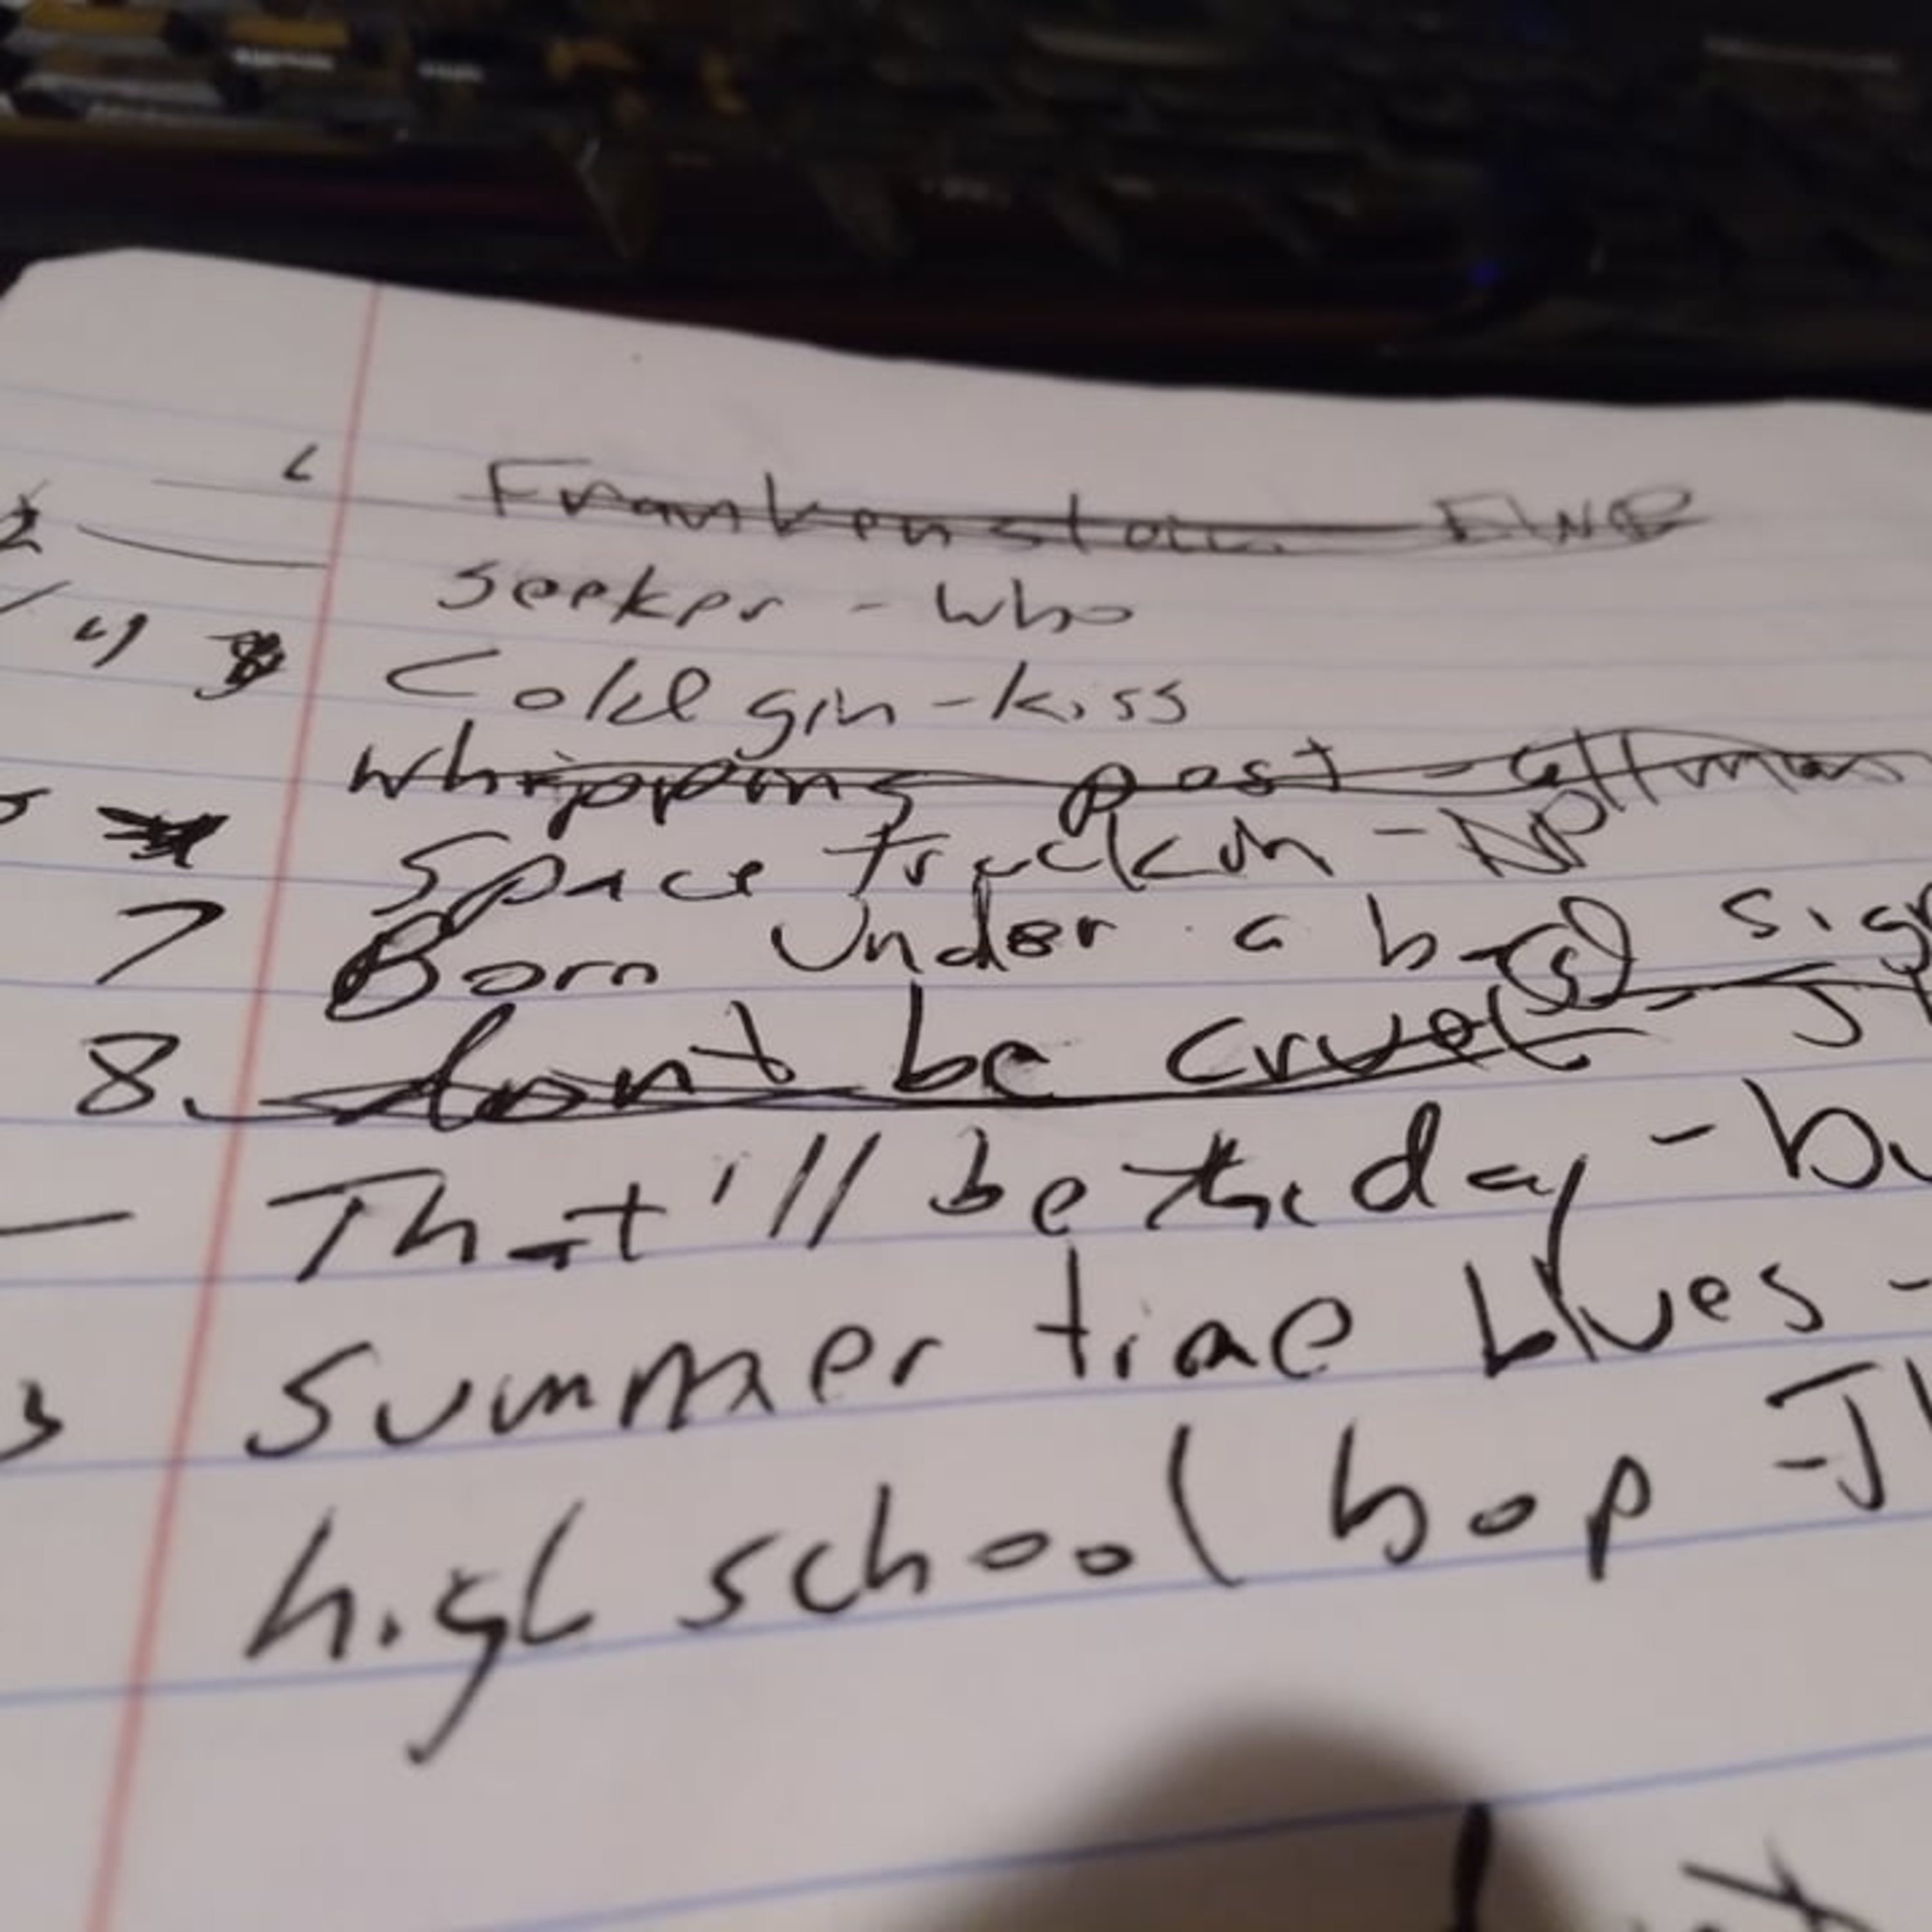 Frankenstein EWG
2 Seeker - Who
4 Cold gin - kiss
Whipping post - allman
Space truckin -
7 Born Under a bad sign
8. dont be cruel
That'll be the day - bu
3 Summer time blues -
high school hop - J